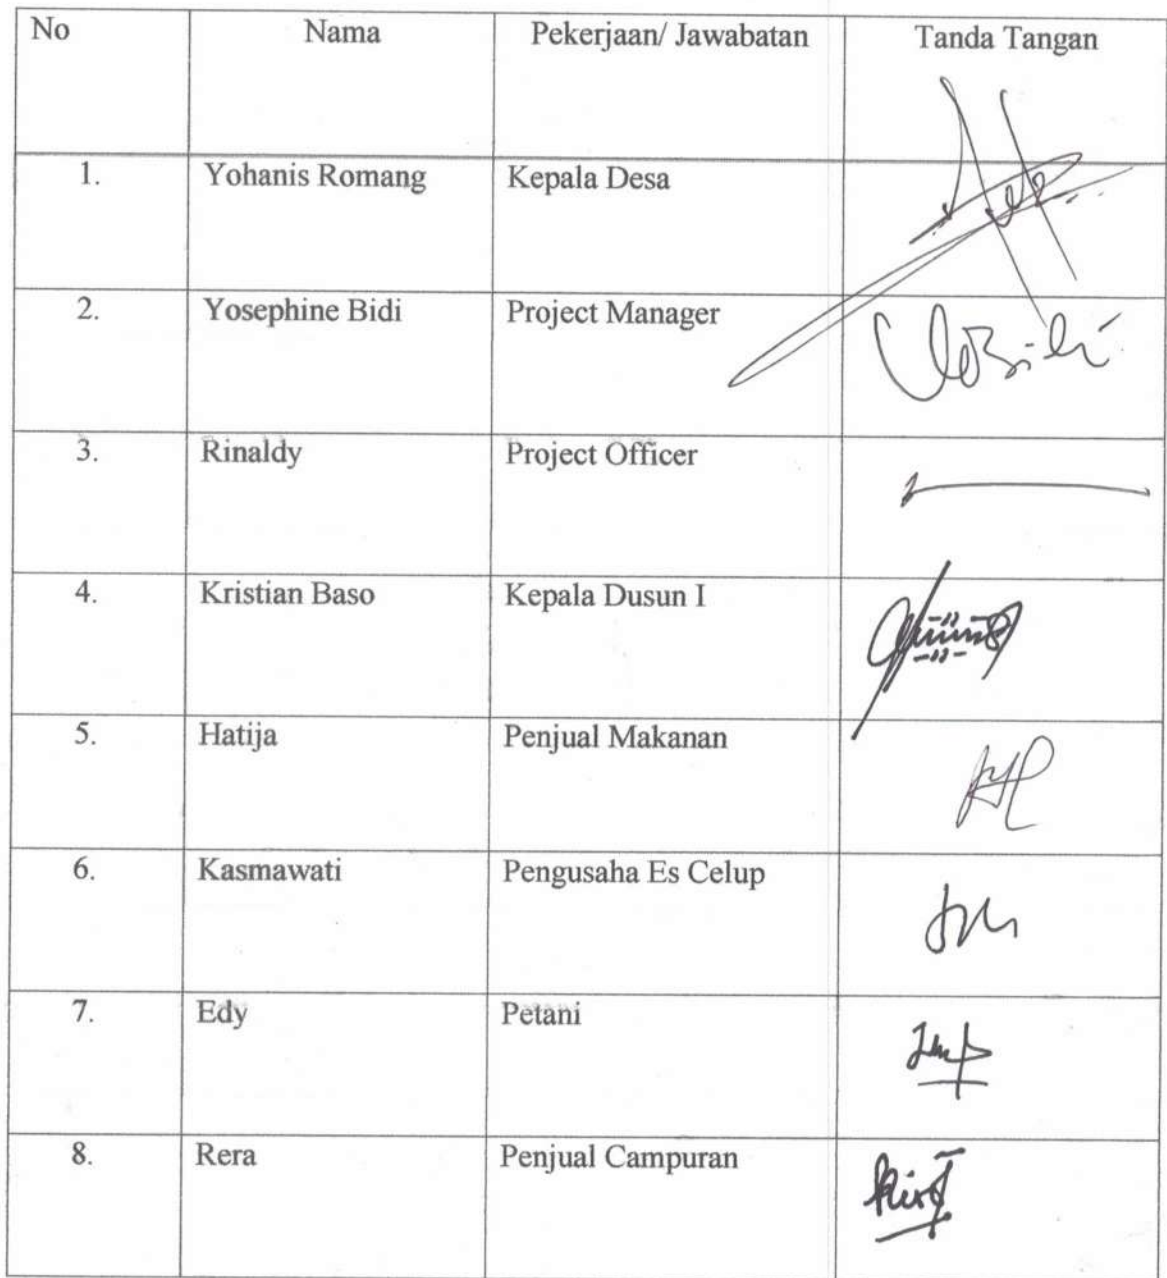 No Nama Pekerjaan/ Jawabatan Tanda Tangan
1. Yohanis Romang Kepala Desa
2. Yosephine Bidi Project Manager
3. Rinaldy Project Officer
4. Kristian Baso Kepala Dusun I
5. Hatija Penjual Makanan
6. Kasmawati Pengusaha Es Celup
7. Edy Petani
8. Rera Penjual Campuran